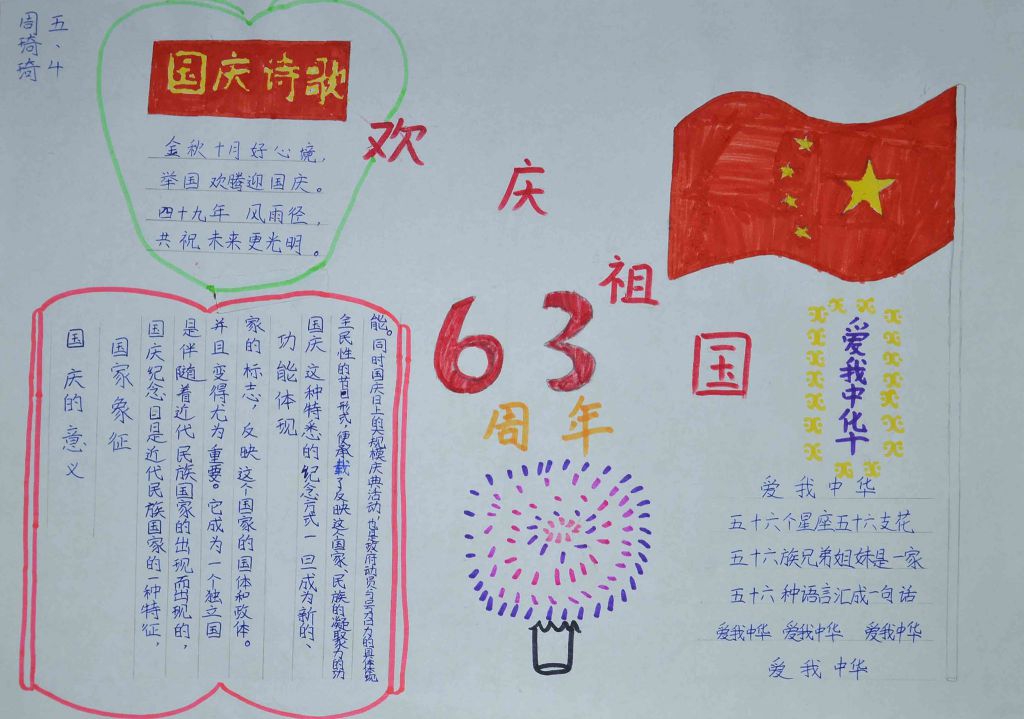 五、4
周琦琦
国庆诗歌
金秋十月好心境,
举国欢腾迎国庆。
四十九年 风雨径,
共祝未来更光明。
欢庆祖国
63
周年
国庆的意义
国家象征
国庆纪念日是近代民族国家的一种特征,
是伴随着近代民族国家的出现而出现的,
并且变得尤为重要。它成为一个独立国
家的标志,反映这个国家的国体和政体。
功能体现
国庆这种特悉的纪念方式一旦成为新的、
全民性的节日形式,便承载了反映这个国家、民族的凝聚力的功
能。同时国庆日上的大规模庆典活动,也是政府动员与号召力的具体体现
爱我中华
爱我中华
五十六个星座五十六支花
五十六族兄弟姐妹是一家
五十六种语言汇成一句话
爱我中华 爱我中华 爱我中华
爱我中华